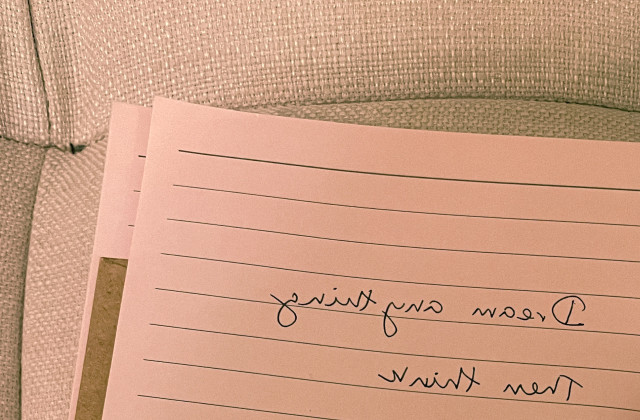 Dream anything
Then think